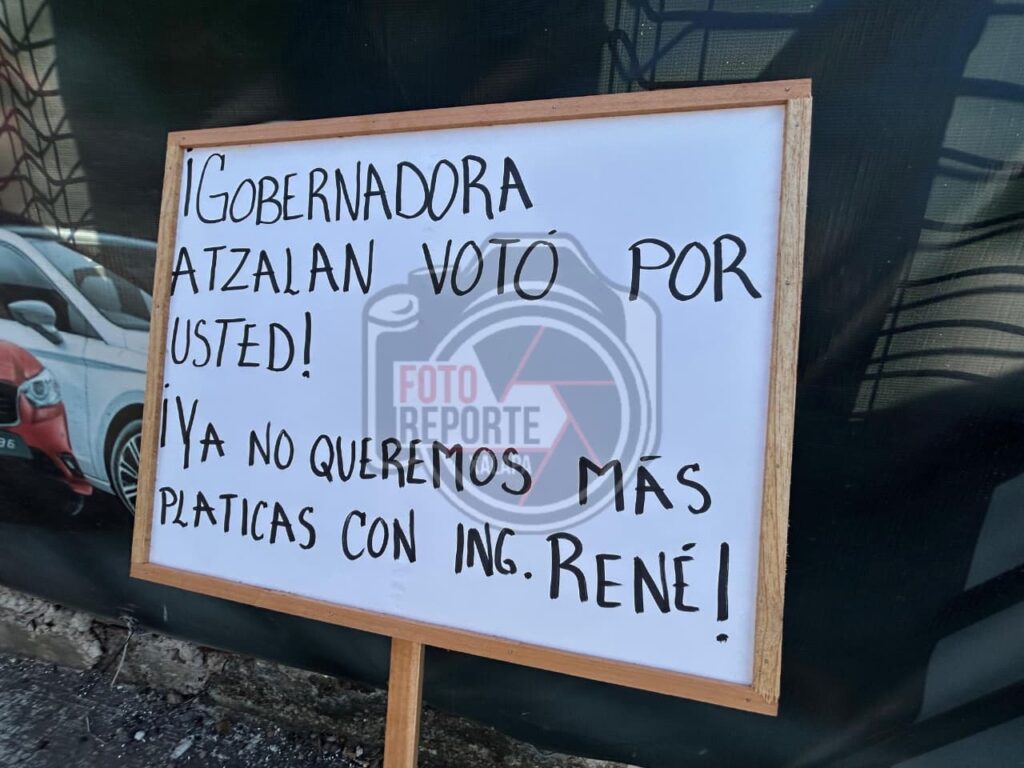 ¡GOBERNADORA
ATZALAN VOTÓ POR
USTED!
¡YA NO QUEREMOS MÁS
PLATICAS CON ING. RENÉ!
FOTO
REPORTE
XALAPA
96